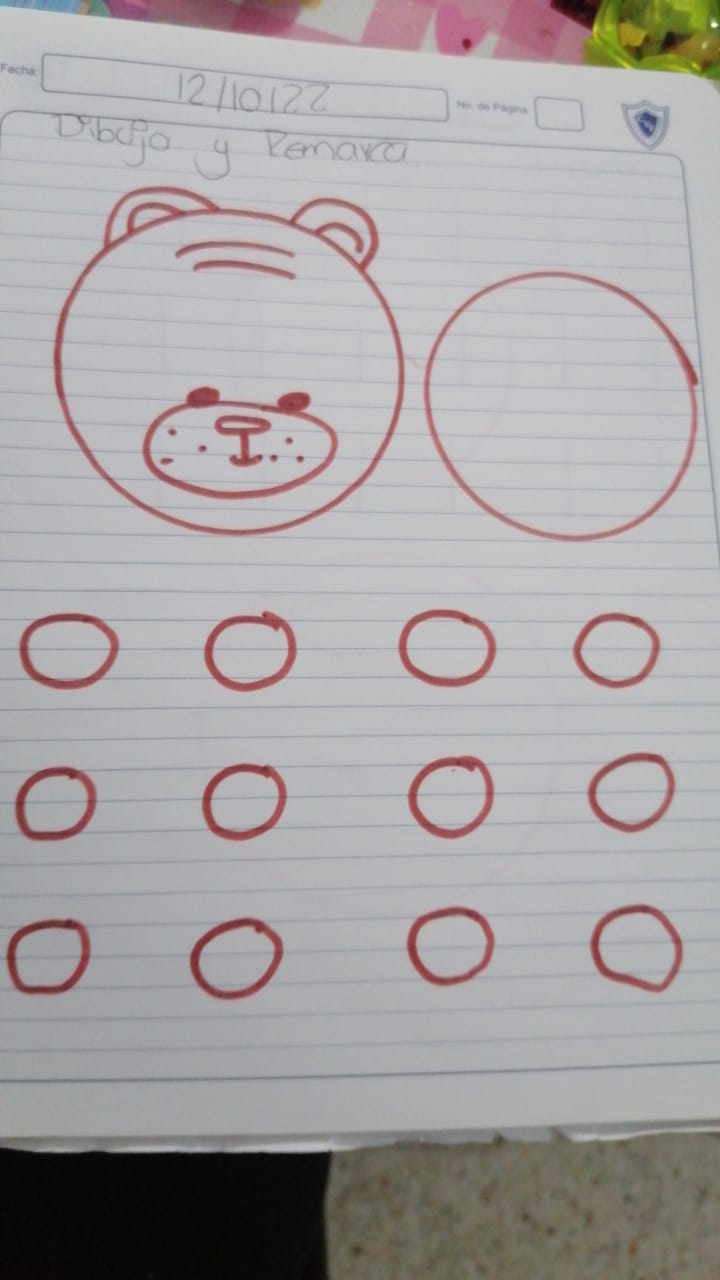 Fecha: 12/10/22 No. de Página
Dibujo y Remarca